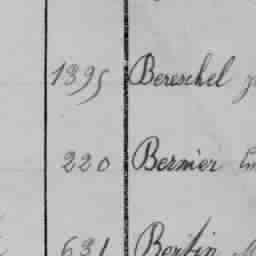 1395 Bereschel
220 Bernier
631 Bertin